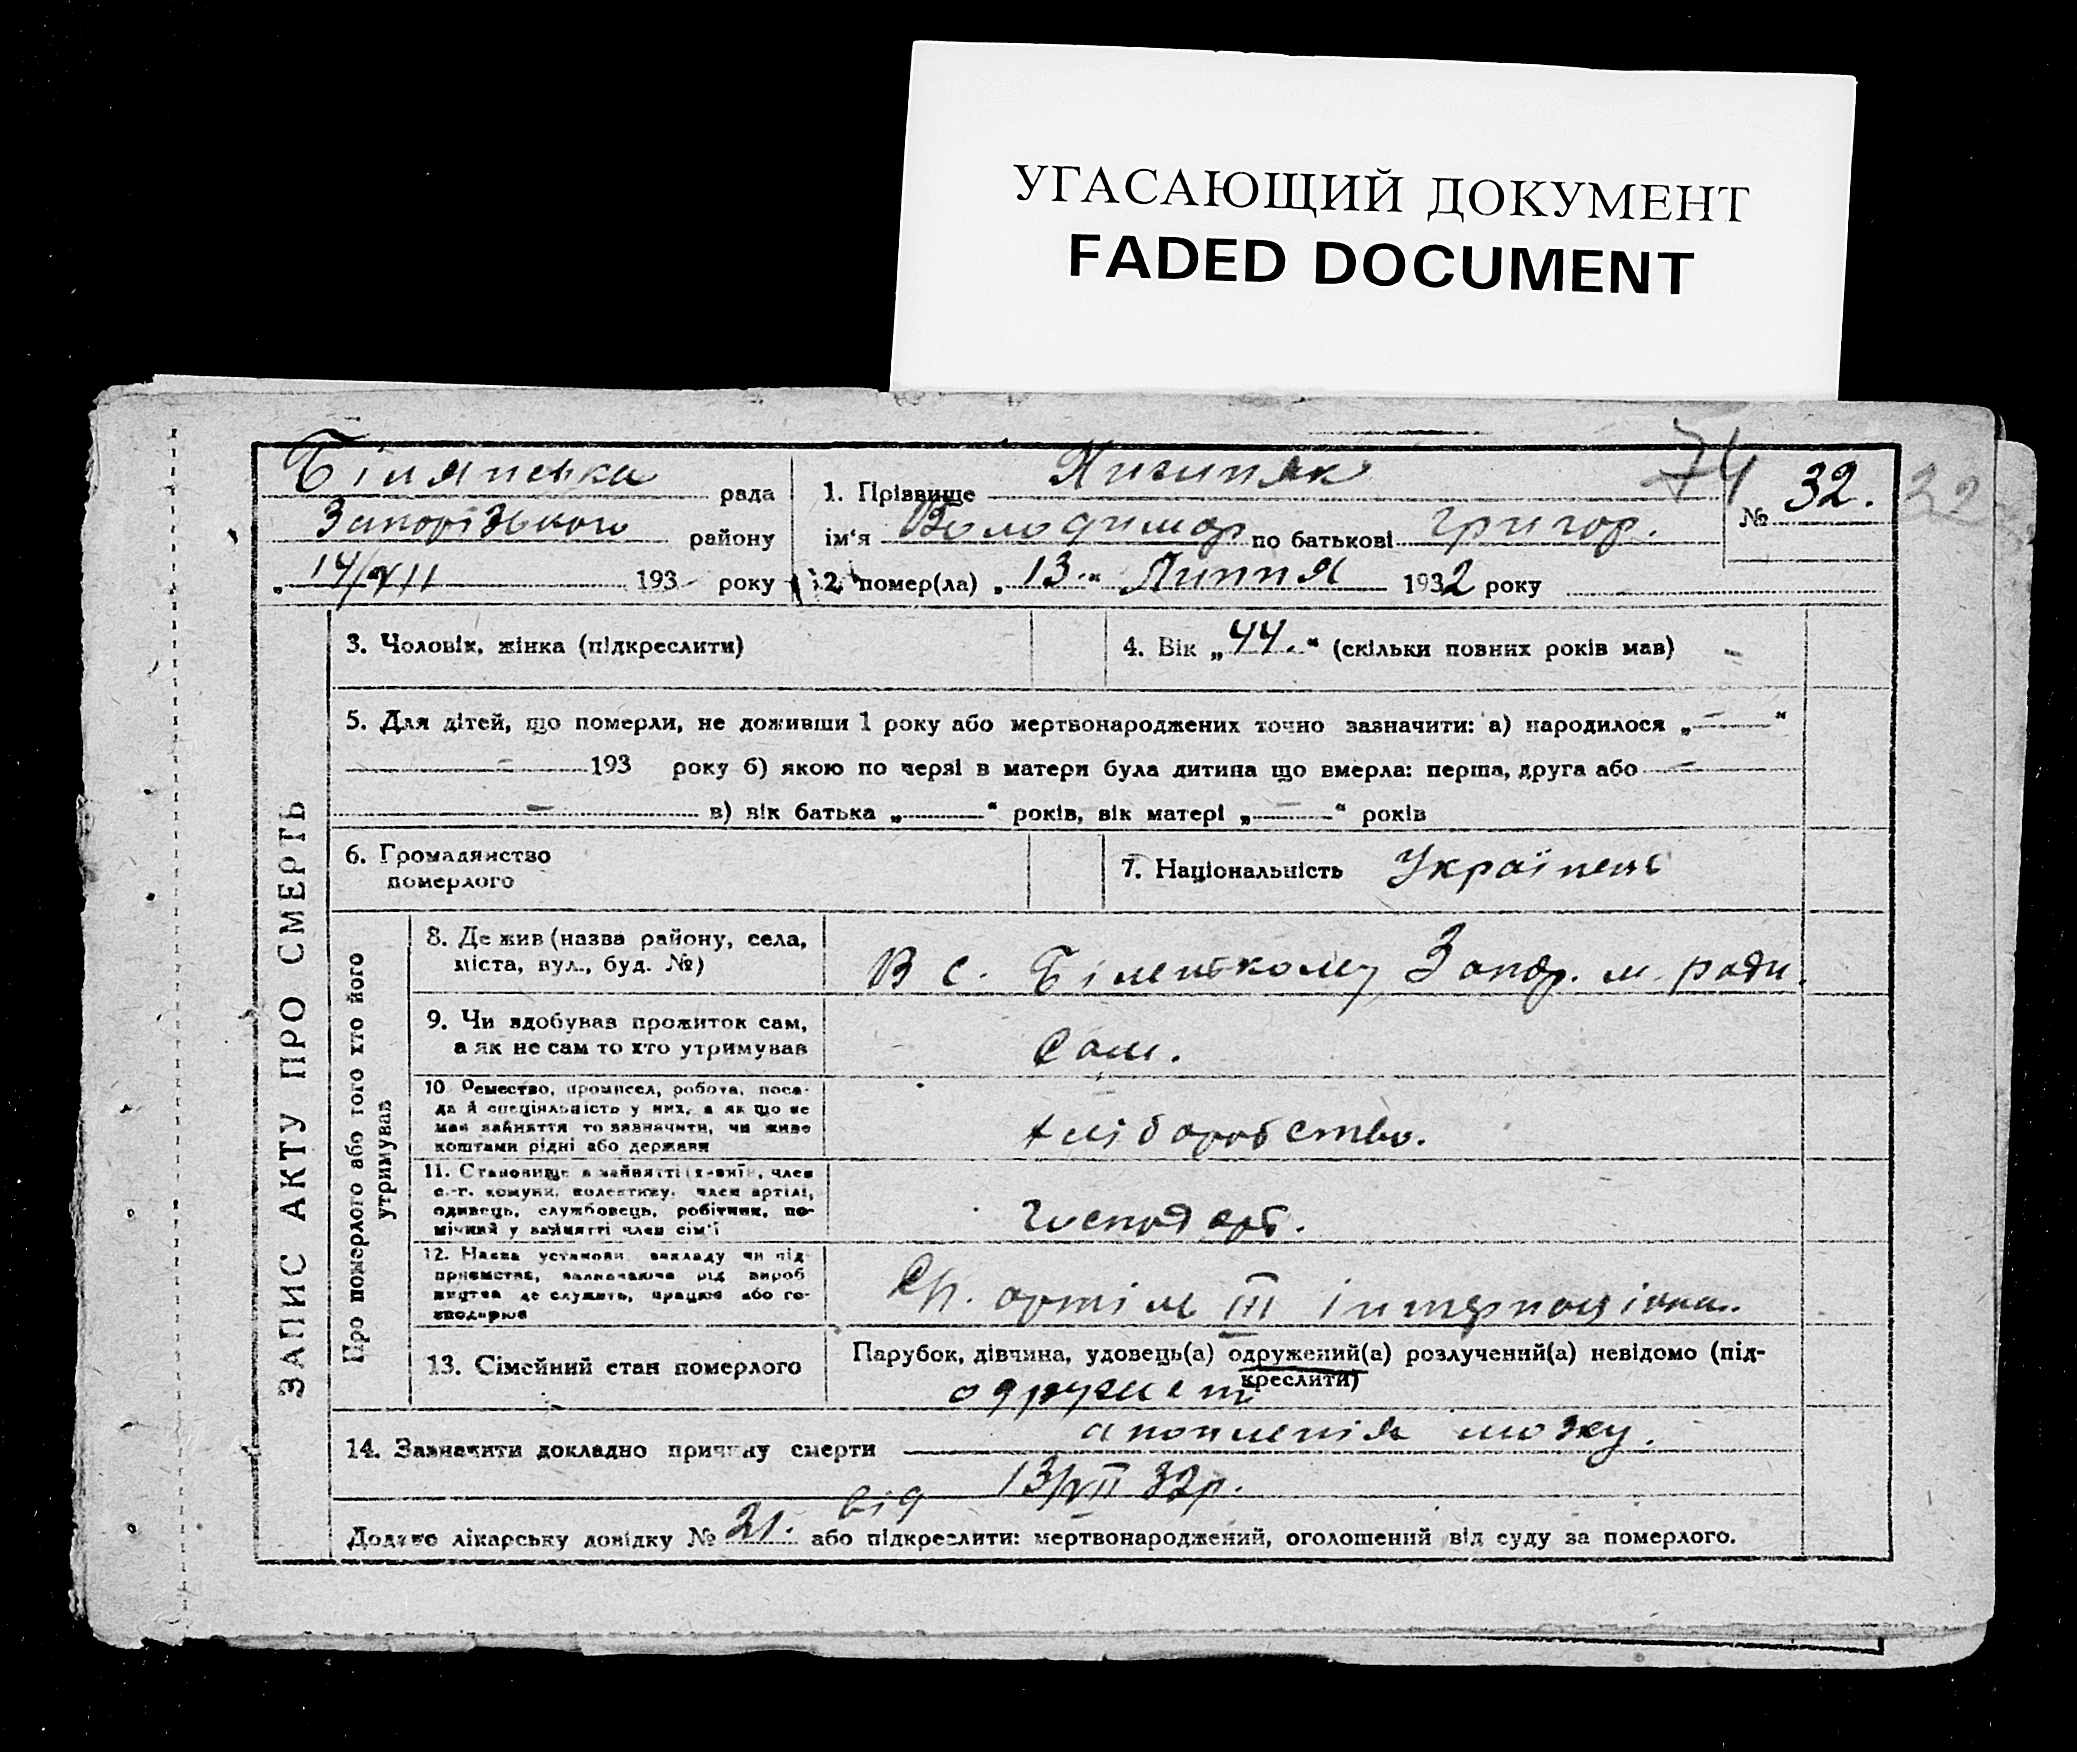 УГАСАЮЩИЙ ДОКУМЕНТ
FADED DOCUMENT
74
Білянська рада
Запорізького району
„ 14/VII 193 року
1. Прізвище
№ 32.
22
ім'я Володимир по батькові Григор.
2. помер(ла) „ 13 " Липня 1932 року
ЗАПИС АКТУ ПРО СМЕРТЬ
3. Чоловік, жінка (підкреслити)
4. Вік „ 44. " (скільки повних років мав) -
5. Для дітей, що померли, не доживши 1 року або мертвонароджених точно зазначити: а) народилося „ - "
- 193 року б) якою по черзі в матери була дитина що вмерла: перша, друга або -
- в) вік батька „ " років, вік матері „ - " років
6. Громадянство
померлого
7. Національність Українець
Про померлого або того хто його
утримував
8. Де жив (назва району, села,
міста, вул., буд. №)
В с. Біленькому Запор. м. ради.
9. Чи здобував прожиток сам,
а як не сам то хто утримував
Сам.
10 Ремество, промисел, робота, поса-
да й спеціяльність у них, а як що не
мав зайняття то зазначити, чи живе
коштами рідні або держави
хліборобство.
11. Становище в зайнятті (хазяїн, член
с.-г. комуни, колективу, член артілі,
одинець, службовець, робітник, по-
мічний у зайнятті член сім'ї
Господарь.
12. Назва установи, закладу чи під-
приємства, зазначаючи рід вироб
ництва де служить, працює або го-
сподарює
артіль III інтернаціона..
13. Сімейний стан померлого
Парубок, дівчина, удовець(а) одружений(а) розлучений(а) невідомо (під-
креслити)
14. Зазначити докладно причину смерти
апоплексія мозку.
від 13/VII 32р.
Додано лікарську довідку № 21. або підкреслити: мертвонароджений, оголошений від суду за померлого.